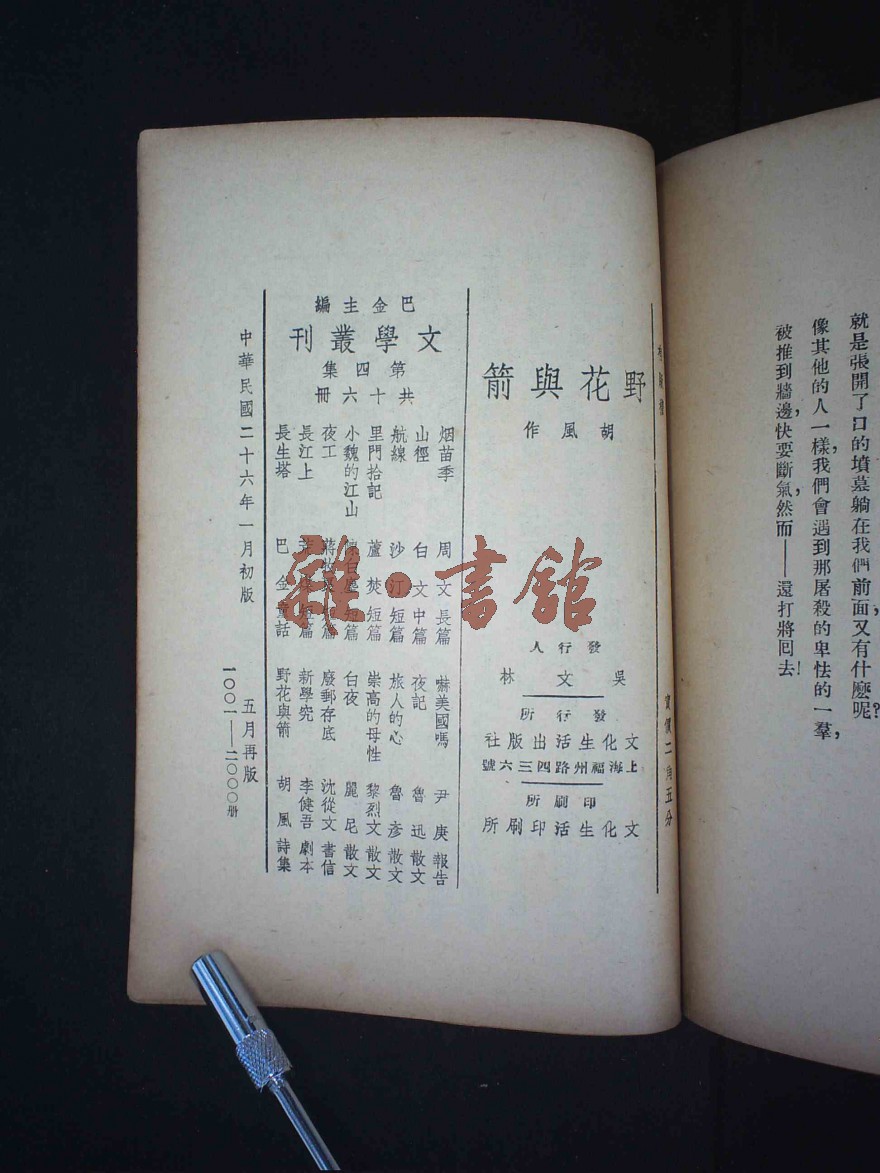 就是張開了口的墳墓躺在我們前面又有什麽呢?
像其他的人一樣,我們會遇到那屠殺的卑怯的一羣,
被推到牆邊,快要斷氣,然而——還打將囘去!
實價二角五分
野花與箭
胡風作
發行人
吳文林
發行所
文化生活出版社
上海福州路四三六號
印刷所
文化生活印刷所
巴金主編
文學叢刊
第四集
共十六冊
烟苗季 周文 長篇
山徑 白文 中篇
航線 沙汀 短篇
里門拾記 蘆焚 短篇
小魏的江山 陳白塵 短篇
夜工 蔣牧良 短篇
長江上 荒煤 短篇
長生塔 巴金 童話
嚇美國嗎 尹庚 報告
夜記 魯迅 散文
旅人的心 魯彥 散文
崇高的母性 黎烈文 散文
白夜 麗尼 散文
廢郵存底 沈從文 書信
新學究 李健吾 劇本
野花與箭 胡風 詩集
中華民國二十六年一月初版
五月再版
1〇〇1—2〇〇〇册
雜·書館